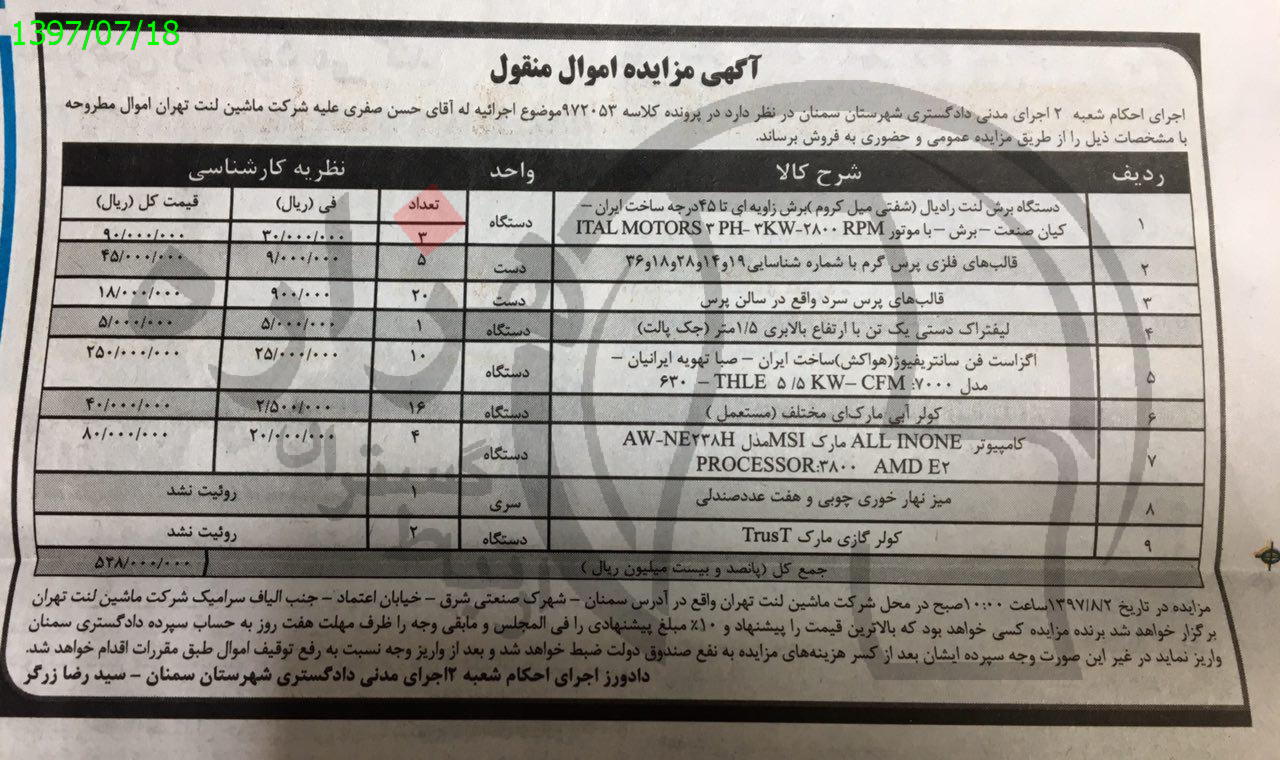 1397/07/18
آگهی مزایده اموال منقول
اجرای احکام شعبه ۲ اجرای مدنی دادگستری شهرستان سمنان در نظر دارد در پرونده کلاسه ۹۷۲۰۵۳موضوع اجرائیه له آقای حسن صفری علیه شرکت ماشین لنت تهران اموال مطروحه
با مشخصات ذیل را از طریق مزایده عمومی و حضوری به فروش برساند.
ردیف شرح کالا واحد نظریه کارشناسی
تعداد فی (ریال) قیمت کل (ریال)
۱ دستگاه برش لنت رادیال (شفتی میل کروم )برش زاویه ای تا ۴۵درجه ساخت ایران –
کیان صنعت – برش – با موتور ITAL MOTORS ۳ PH- ۳KW-۲۸۰۰ RPM دستگاه ۳ ۳۰/۰۰۰/۰۰۰ ۹۰/۰۰۰/۰۰۰
۲ قالب‌های فلزی پرس گرم با شماره شناسایی۱۹و۱۴و۲۸و۱۸و۳۶ دست ۵ ۹/۰۰۰/۰۰۰ ۴۵/۰۰۰/۰۰۰
۳ قالب‌های پرس سرد واقع در سالن پرس دست ۲۰ ۹۰۰/۰۰۰ ۱۸/۰۰۰/۰۰۰
۴ لیفتراک دستی یک تن با ارتفاع بالابری ۱/۵متر (جک پالت) دستگاه ۱ ۵/۰۰۰/۰۰۰ ۵/۰۰۰/۰۰۰
۵ اگزاست فن سانتریفیوژ(هواکش)ساخت ایران – صبا تهویه ایرانیان –
مدل ۶۳۰ – THLE ۵ /۵ KW– CFM :۷۰۰۰ دستگاه ۱۰ ۲۵/۰۰۰/۰۰۰ ۲۵۰/۰۰۰/۰۰۰
۶ کولر آبی مارک‌ای مختلف (مستعمل ) دستگاه ۱۶ ۲/۵۰۰/۰۰۰ ۴۰/۰۰۰/۰۰۰
۷ کامپیوتر ALL INONE مارک MSIمدل AW-NE۲۳۸H
PROCESSOR:۳۸۰۰ AMD E۲ دستگاه ۴ ۲۰/۰۰۰/۰۰۰ ۸۰/۰۰۰/۰۰۰
۸ میز نهار خوری چوبی و هفت عددصندلی سری ۱ روئیت نشد
۹ کولر گازی مارک TrusT دستگاه ۲ روئیت نشد
جمع کل (پانصد و بیست میلیون ریال ) ۵۲۸/۰۰۰/۰۰۰
مزایده در تاریخ ۱۳۹۷/۸/۲ساعت ۱۰:۰۰صبح در محل شرکت ماشین لنت تهران واقع در آدرس سمنان – شهرک صنعتی شرق – خیابان اعتماد – جنب الیاف سرامیک شرکت ماشین لنت تهران
برگزار خواهد شد برنده مزایده کسی خواهد بود که بالاترین قیمت را پیشنهاد و ۱۰٪ مبلغ پیشنهادی را فی المجلس و مابقی وجه را ظرف مهلت هفت روز به حساب سپرده دادگستری سمنان
واریز نماید در غیر این صورت وجه سپرده ایشان بعد از کسر هزینه‌های مزایده به نفع صندوق دولت ضبط خواهد شد و بعد از واریز وجه نسبت به رفع توقیف اموال طبق مقررات اقدام خواهد شد.
دادورز اجرای احکام شعبه ۲اجرای مدنی دادگستری شهرستان سمنان – سید رضا زرگر